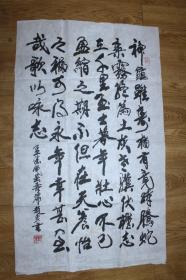 神龜雖壽猶有竟時騰蛇
乘霧終為土灰老驥伏櫪志
在千里烈士暮年壯心不已
盈縮之期不但在天養怡
之福可得永年幸甚至
哉歌以咏志